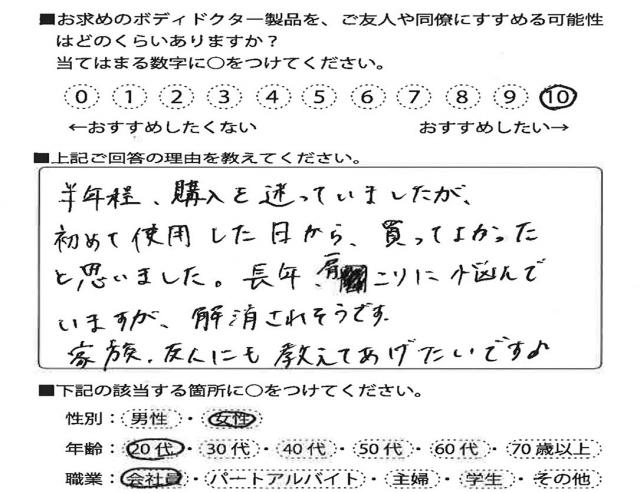 ■お求めのボディドクター製品を、ご友人や同僚にすすめる可能性
はどのくらいありますか？
当てはまる数字に○をつけてください。
0 1 2 3 4 5 6 7 8 9 10
←おすすめしたくない おすすめしたい→
■上記ご回答の理由を教えてください。
半年程、購入を迷っていましたが、
初めて使用した日から、買ってよかった
と思いました。長年、肩こりに悩んで
いますが、解消されそうです。
家族、友人にも教えてあげたいです♪
■下記の該当する箇所に○をつけてください。
性別：男性・女性
年齢：20代・30代・40代・50代・60代・70歳以上
職業：会社員・パートアルバイト・主婦・学生・その他